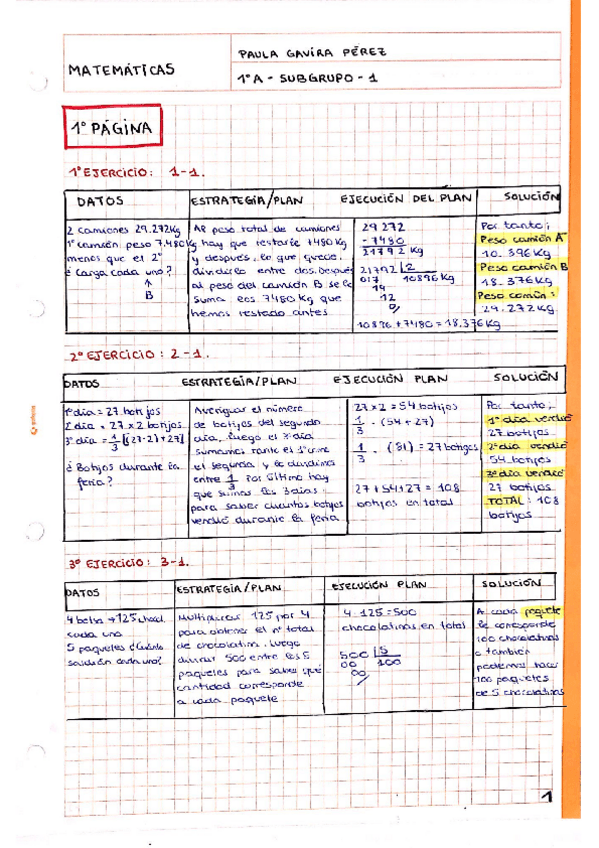 MATEMÁTICAS
PAULA GAVIRA PÉREZ
1º A - SUBGRUPO - 1
1º PÁGINA
1º EJERCICIO: 1-1.
DATOS
2 camiones 29.272Kg
1º camión peso 7.480Kg
menos que el 2º
¿Carga cada uno?
↑
B
ESTRATEGIA/PLAN
Al peso total de camiones
hay que restarle 7480 Kg
y después, lo que quede,
dividirlo entre dos. Después
al peso del camión B se le
suma los 7480 Kg que
hemos restado antes
EJECUCIÓN DEL PLAN
29 272
- 7480
21792 Kg
21792 2
017 10896 Kg
19
12
0
10896 + 7480 = 18.376 Kg
SOLUCIÓN
Por tanto;
Peso camión A
10.896 Kg
Peso camión B
18.376 Kg
Peso común:
29.272 Kg.
2º EJERCICIO: 2-1.
DATOS
1º día = 27 botijos
2 día = 27 x 2 botijos
3º día = 1/3 [(27·2)+27]
¿Botijos durante la
feria?
ESTRATEGIA/PLAN
Averiguar el número
de botijos del segundo
día, luego el 3º día
sumamos tanto el 1º como
el segundo y lo dividimos
entre 1/3. Por último hay
que sumar los 3 días
para saber cuántos botijos
vendió durante la feria
EJECUCIÓN PLAN
27 x 2 = 54 botijos
1/3 · (54 + 27)
1/3 · (81) = 27 botijos
27 + 54 + 27 = 108
botijos en total
SOLUCIÓN
Por tanto,
1º día vendió
27 botijos
2º día vendió
54 botijos
3º día vendió
27 botijos
TOTAL: 108
botijos
3º EJERCICIO: 3-1.
DATOS
4 bolsa → 125 chocol.
cada una
5 paqueles ¿Cuánto
saldrán cada uno?
ESTRATEGIA/PLAN
Multiplicar 125 por 4
para obtener el nº total
de chocolatin. Luego
dividir 500 entre los 5
paqueles para saber qué
cantidad corresponde
a cada paquete
EJECUCIÓN PLAN
4 · 125 = 500
chocolatinas en total
500 5
00 100
00
SOLUCIÓN
A cada paquete
le corresponde
100 chocolatinas
o también
podemos hacer
100 paquetes
de 5 chocolatinas
1